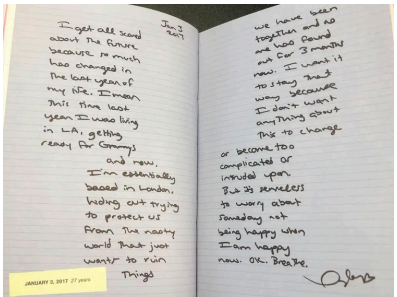 Jan 3
2017
I get all scared
about the future
because so much
has changed in
the last year of
my life. I mean
This time last
year I was living
in L.A, getting
ready for Grammys
and now,
I'm essentially
based in London,
hiding out trying
to protect us
from the nasty
world that just
wants to ruin
Things
JANUARY 3, 2017 27 years
we have been
together and no
one has found
out for 3 months
now. I want it
to stay that
way because
I don't want
anything about
this to change
or become too
complicated or
intruded upon.
But it's senseless
to worry about
someday not
being happy when
I am happy
now. OK. Breathe.